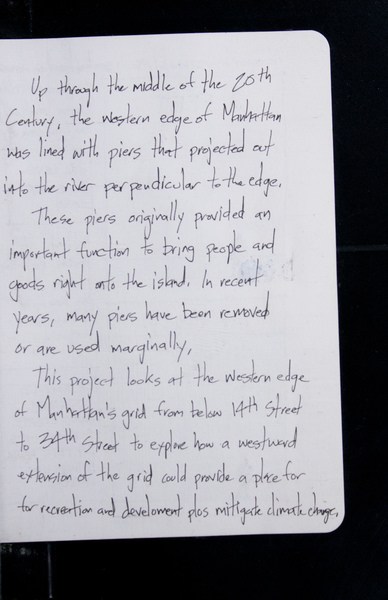 Up through the middle of the 20th
Century, the western edge of Manhattan
was lined with piers that projected out
into the river perpendicular to the edge.
These piers originally provided an
important function to bring people and
goods right onto the island. In recent
years, many piers have been removed
or are used marginally.
This project looks at the western edge
of Manhattan's grid from below 14th Street
to 34th Street to explore how a westward
extension of the grid could provide a place for
for recreation and develoment plus mitigate climate change.